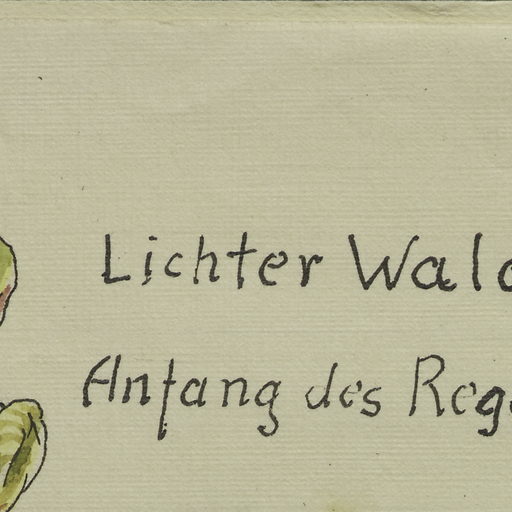 Lichter Wal
Anfang des Reg